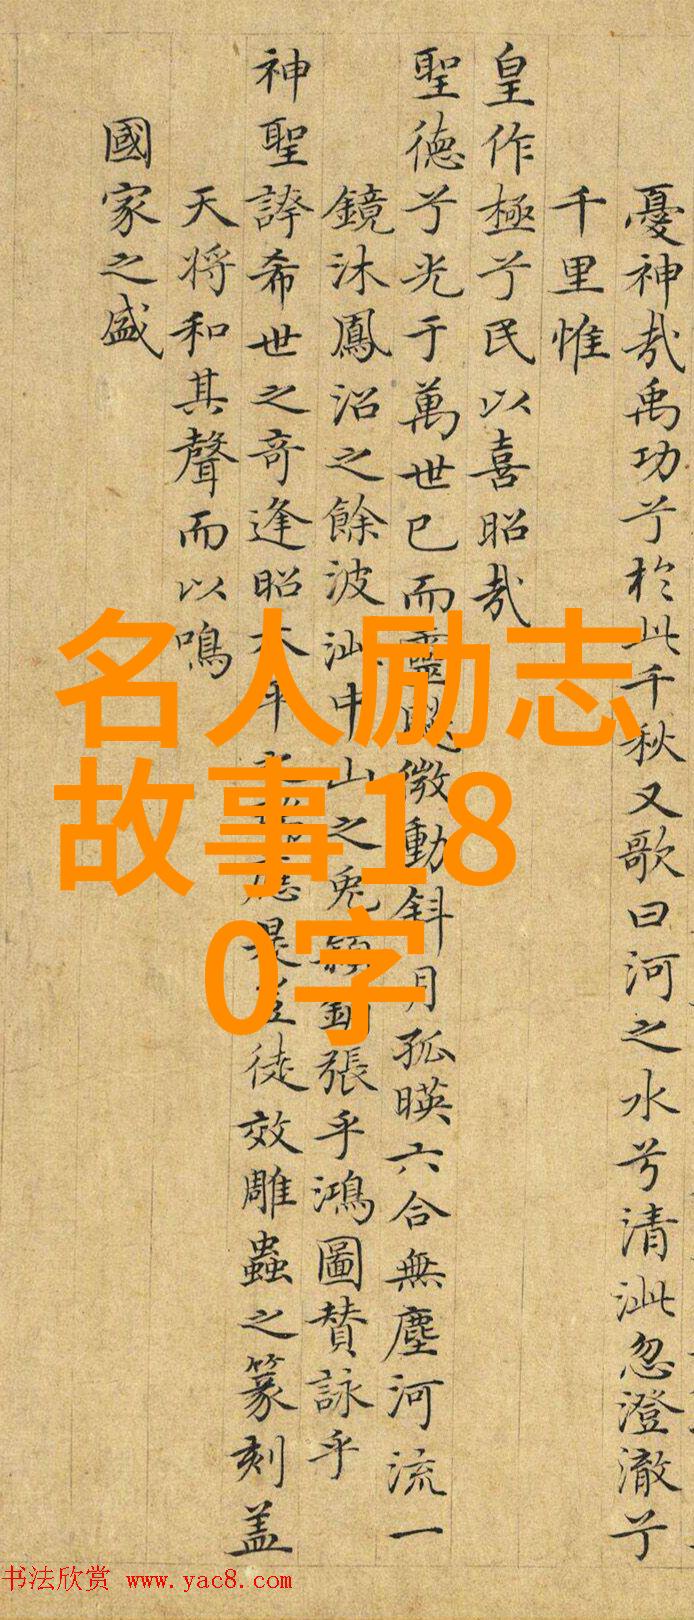 憂神哉禹功兮於此千秋又歌曰河之水兮清泚忽澄澈兮
千里惟
皇作極兮民以喜昭哉
聖德兮光于萬世已而微動斜月孤暎六合無塵河流一
鏡沐鳳沼之餘波汕中山之兔張乎鴻圖賛詠乎
神聖誇希世之奇逢昭徒效雕蟲之篆刻盖
天将和其聲而以鳴
國家之盛
名人励志
故事18
0字
书法欣赏 www.yac8.com